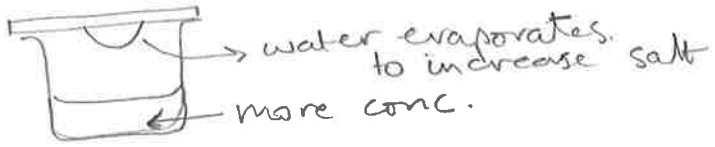 water evaporates.
to increase salt
more conc.